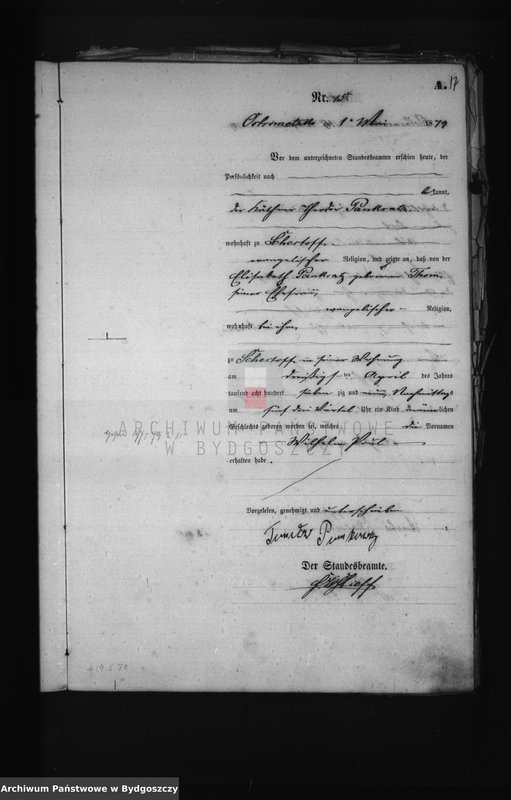 A. 17
Nr. 15
Ostrometzko am 1ten Mai 1879
Vor dem unterzeichneten Standesbeamten erschien heute, der
Persönlichkeit nach
bekannt,
der Käthner Theodor Pankratz
wohnhaft zu
evangelischer Religion, und zeigte an, daß von der
Elisabeth Pankratz geborenen Thom,
seiner Ehefrau,
evangelischer Religion,
wohnhaft bei ihm,
zu in seiner Wohnung
am dreißigsten April des Jahres
tausend acht hundert sieben zig und neun Nachmittags
um fünf drei Viertel Uhr ein Kind männlichen
Geschlechts geboren worden sei, welches die Vornamen
Wilhelm Paul
erhalten habe.
Vorgelesen, genehmigt und unterschrieben
Der Standesbeamte.
19.5.79
ARCHIWUM PAŃSTWOWE
W BYDGOSZCZY
Archiwum Państwowe w Bydgoszczy